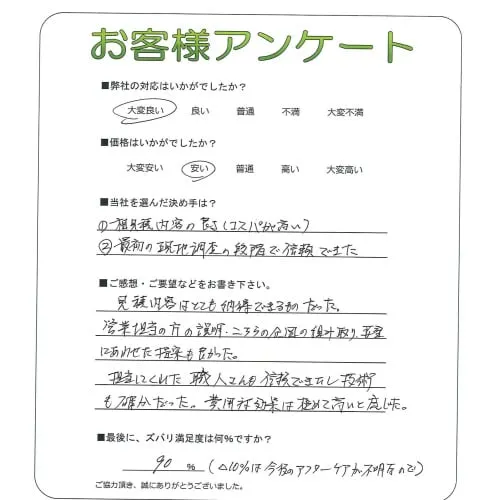 お客様アンケート
■弊社の対応はいかがでしたか？
大変良い 良い 普通 不満 大変不満
■価格はいかがでしたか？
大変安い 安い 普通 高い 大変高い
■当社を選んだ決め手は？
①相見積内容の良さ(コスパが高い)
②最初の現地調査の段階で信頼できた
■ご感想・ご要望などをお書き下さい。
見積内容はとても納得できるものだった。
営業担当の方の説明・こちらの企図の組み取り、要望
にあわせた提案も良かった。
担当してくれた職人さんも信頼できたし技術
も確かだった。費用対効果は極めて高いと感じました。
■最後に、ズバリ満足度は何%ですか？
90 % (△10%は今後のアフターケアが不明なので)
ご協力頂き、誠にありがとうございました。